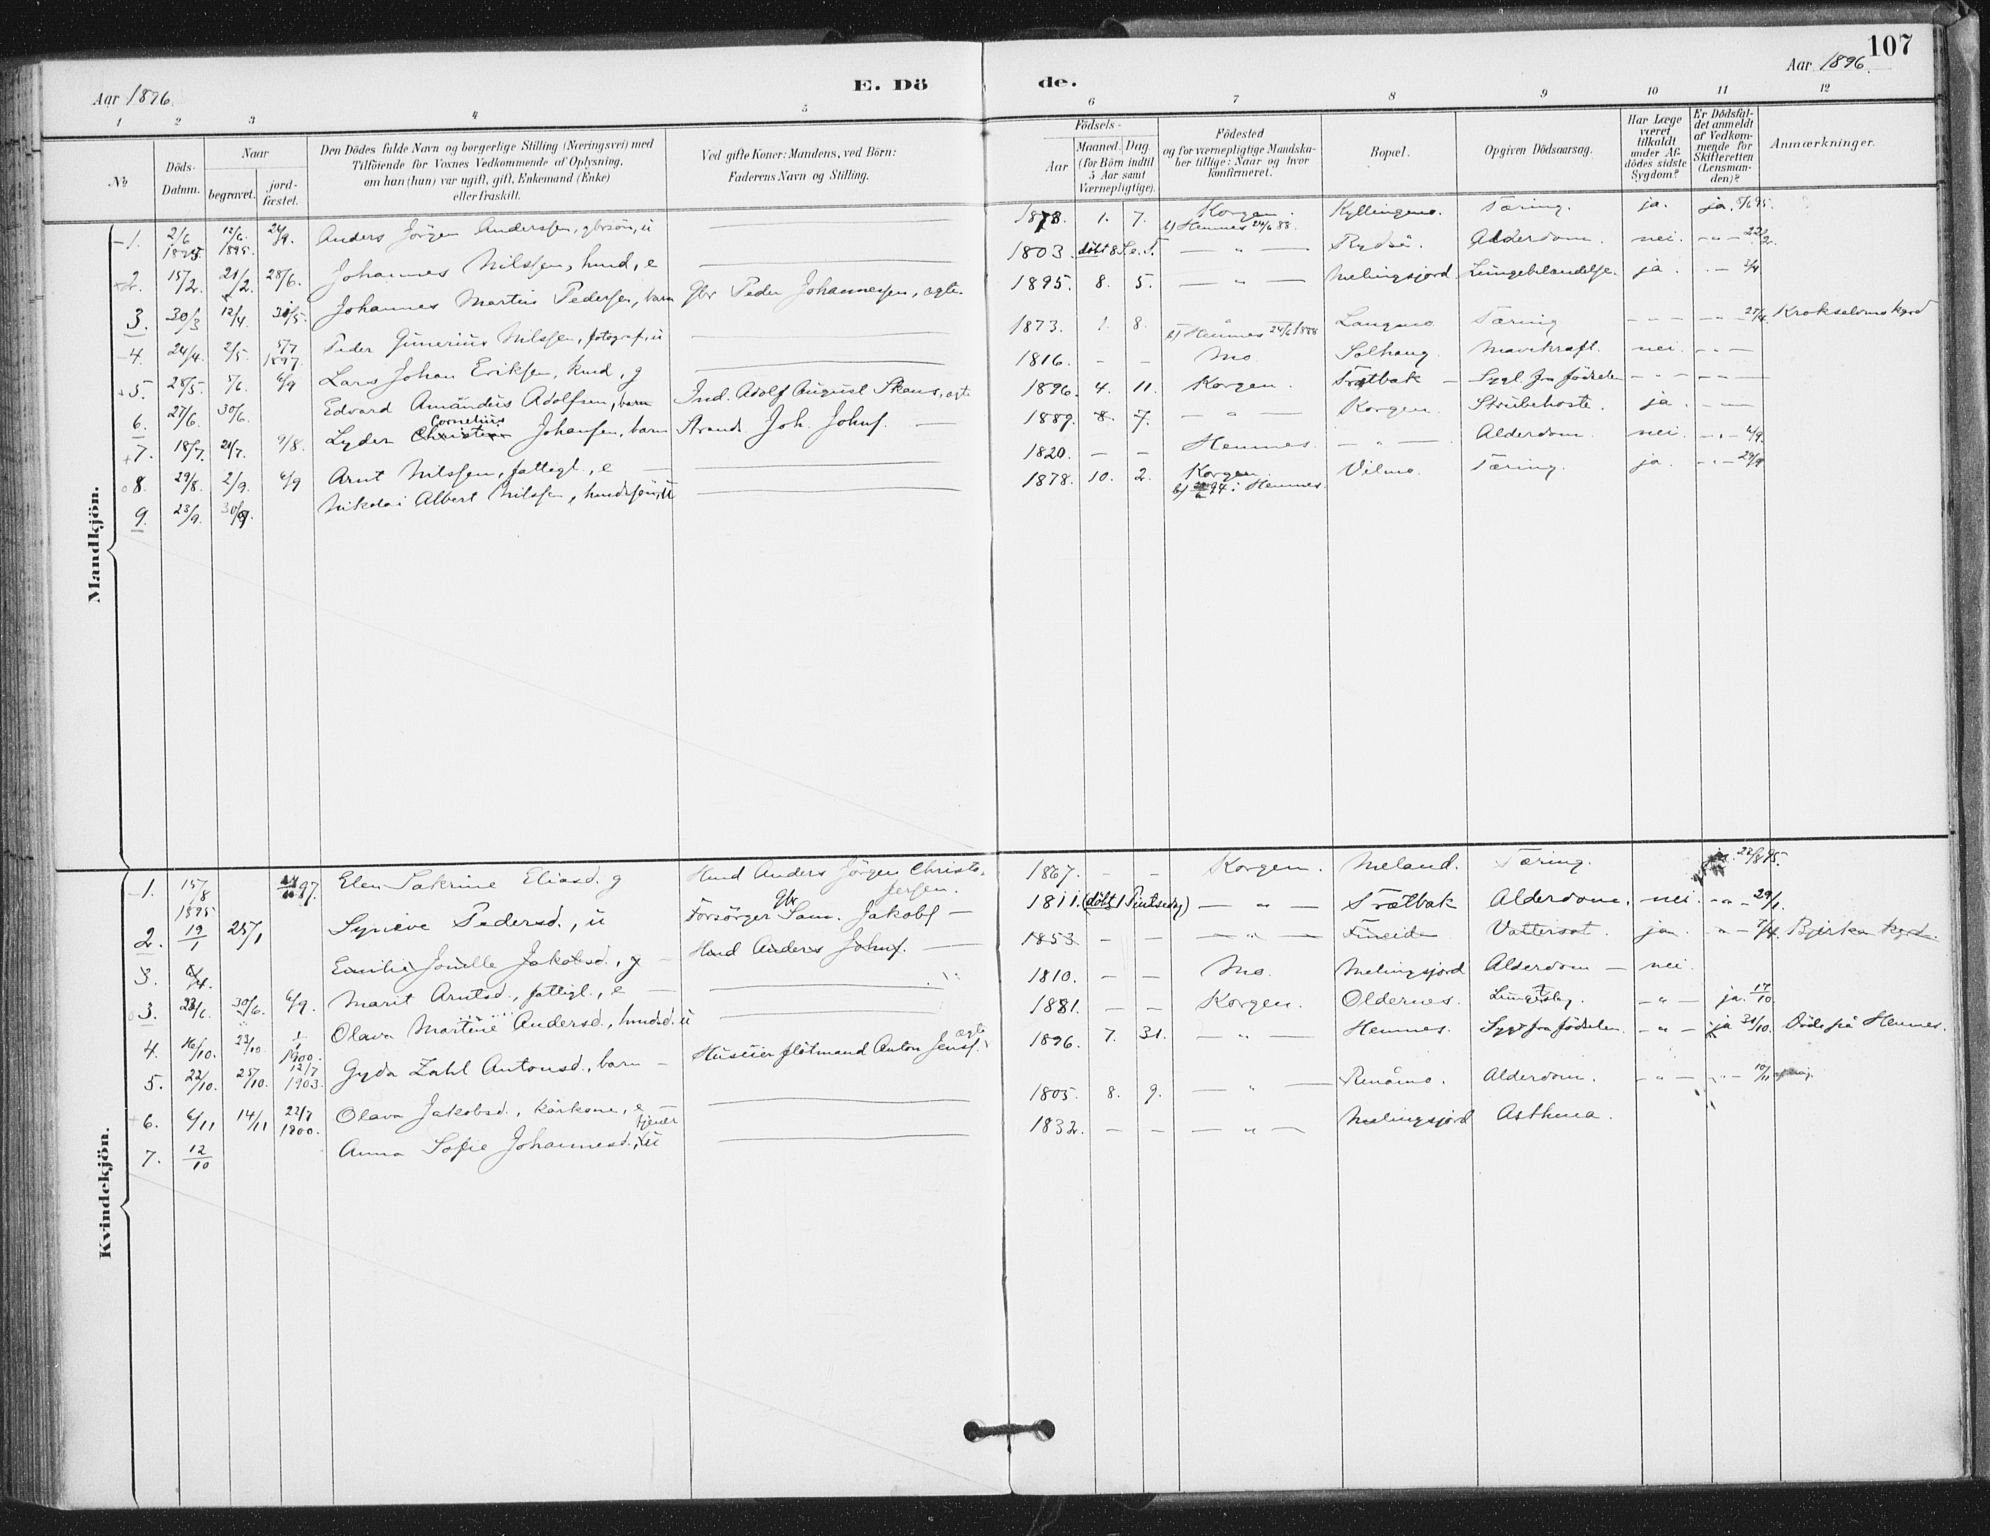 107
Aar 1896.
E. Dö
de.
Aar 1896.
1 2 3 4 5 6 7 8 9 10 11 12
No
Döds-Datum.
Naar
begravet.
jord-fæstet.
Den Dödes fulde Navn og borgerlige Stilling (Næringsvei) med
Tilföiende for Voxnes Vedkommende af Oplysning,
om han (hun) var ugift, gift, Enkemand (Enke)
eller fraskilt.
Ved gifte Koner: Mandens, ved Börn:
Faderens Navn og Stilling.
Födsels-
Aar
Maaned. Dag
(for Börn indtil
5 Aar samt
Værnepligtige).
Födested
og for værnepligtige Mandska-
ber tillige: Naar og hvor
konfirmeret.
Bopæl.
Opgiven Dödsaarsag.
Har Læge
været
tilkaldt
under Af-
dödes sidste
Sygdom?
Er Dödsfal-
det anmeldt
af Vedkom-
mende for
Skifteretten
(Lensman-
den)?
Anmærkninger.
Mandkjön.
1. 2/6 1895 12/6 1895 24/9. Anders Jörgen Anderssen, gbrsön, ü 1873. 1. 7. Korgen. b) Hemnes 24/6 88. Kyllingmo. Tæring. ja. ja.
2. 15/2. 21/2. 28/6. Johannes Nilssen, husd, e 1803 döbt 8 S.e.T. — " — Rydså. Alderdom. nei. - " - 22/2.
3. 30/3 12/4. 31/5. Johannes Martin Pedersen, barn Gbr Peder Johannessen, ægte 1895. 8. 5. — " — Melingsjord Lungebetændelse. ja. - -
4. 24/4. 2/5. 5/7 1897. Peder Gunerius Nilssen, fotograf, ü 1873. 1. 8. b) Hemnes 24/6 1888 Langmo Tæring - " - - " - 27/4. Krokselvmo kgrd
5. 28/5. 7/6. 6/9 Lars Johan Eriksen, husd, g 1816. — — Mo. Solhaug. Mavekræft. nei. - " -
6. 27/6. 30/6. Edvard Amandus Adolfsen, barn Ind. Adolf August Skaus, ægte 1896. 4. 11. Korgen. Trætbak Sygl. fra födselen - " -
7. 18/7. 21/7. 9/8. Lyder Cornelius Johansen, barn Strands. Joh. Johns. 1889. 8. 7. — " — Korgen. Strubehoste. ja.
8. 29/8. 2/9. 6/9 Arnt Nilssen, fattigl., e 1820. — — Hemnes. — " — Alderdom. nei. - " - 6/9.
9. 23/9. 30/9. Nikolai Albert Nilssen, husdssön, ü 1878. 10. 2. Korgen. b) 94 i Hemnes Vilmo. Tæring. ja. - " - 29/9
Kvindekjön.
1. 15/8 1895 97. Elen Katrine Eliasd. g Husd Anders Jörgen Christofersen. 1867. — — Korgen. Meland. Tæring. 22/8 95.
2. 19/1 25/1 Synneve Pedersd., ü Forsörger gbr Sam. Jakobs. 1811. (döbt 1 Pintsedag) — " — Trætbak Alderdom. nei. - " - 29/1.
3. 6/4. Emilie Jonelle Jakobsd., g Husd Anders Johns. 1853 — — — " — Fineide Vattersot. ja. - " - 7/4. Bjerka kgrd.
3. 23/6. 30/6. 6/9. Marit Arntsd., fattigl., e 1810. — — Mo. Melingsjord Alderdom — nei.
4. 16/10. 23/10. 1/1 1900. Olava Martine Andersd., husdsd. ü 1881. — — Korgen. Oldernes. - " - ja. 17/10
5. 22/10. 25/10. 12/7 1903. Gyda Zahl Antonsd., barn Huseier fløtmand Anton Jens. ægte 1896. 7. 31. — " — Hemnes. Sygl fra födselen. - " - ja 31/10. Döde på Hemnes.
6. 6/11 14/11 22/7 1900. Olava Jakobsd., kårkone, e 1805. 8. 9. — " — Renåmo. Alderdom. - " - - " - 10/11
7. 12/10 Anna Sofie Johannesd., tjener ü 1832. — — — " — Melingsjord Asthma.